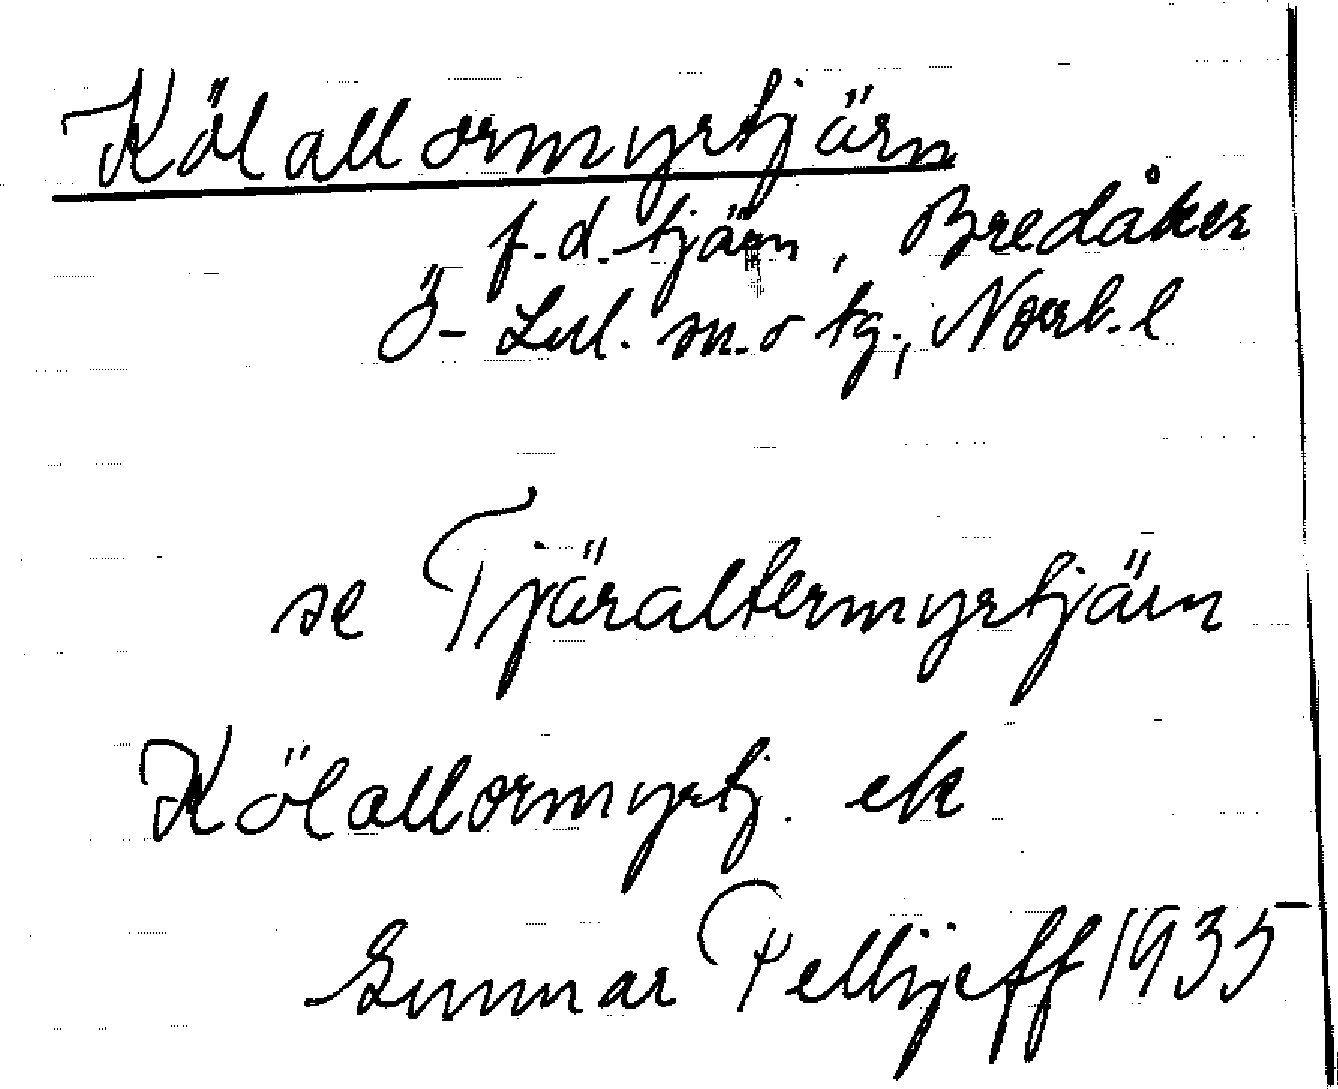 Kölallormyrtjärn
f.d. tjärn, Bredåker
Ö-Lul. sn. o tg., Norrb. l
se Tjäraltermyrtjärn
Kölallormyrtj. ek
Gunnar Pellijeff 1935